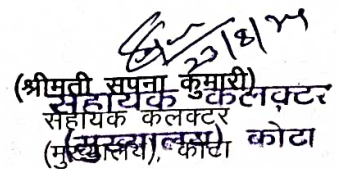 23/8/24
(श्रीमती सपना कुमारी)
सहायक कलक्टर
सहायक कलक्टर
(मुख्यालय) कोटा
(मुख्यालय), कोटा